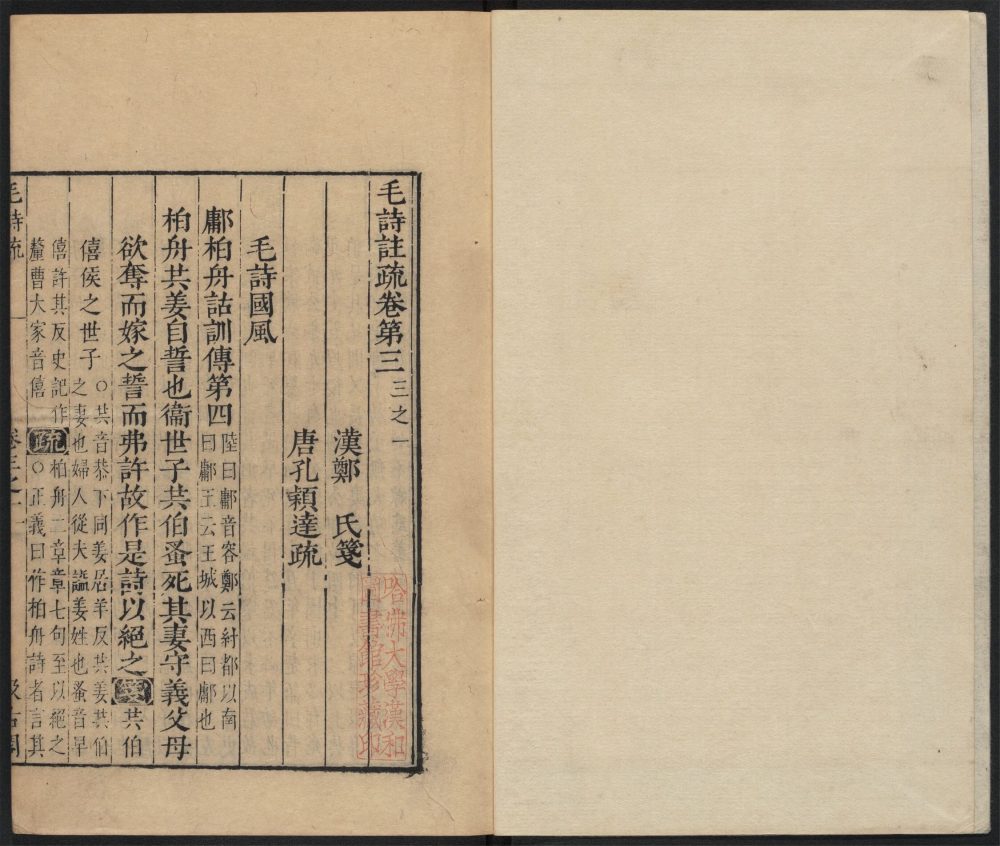 毛詩註疏卷第三 三之一
漢鄭 氏箋
唐孔穎達疏
毛詩國風
鄘柏舟詁訓傳第四 陸曰鄘音容鄭云紂都以南
曰鄘王云王城以西曰鄘也
柏舟共姜自誓也衞世子共伯蚤死其妻守義父母
欲奪而嫁之誓而弗許故作是詩以絕之 箋 共伯
僖侯之世子 ○共音恭下同姜居羊反共姜共伯
之妻也婦人從夫謚姜姓也蚤音早
僖許其反史記作
釐曹大家音僖 疏 柏舟二章章七句至以絕之
○正義曰作柏舟詩者言其
毛詩疏
卷三之一
汲古閣
哈佛大學漢和
圖書館珍藏印